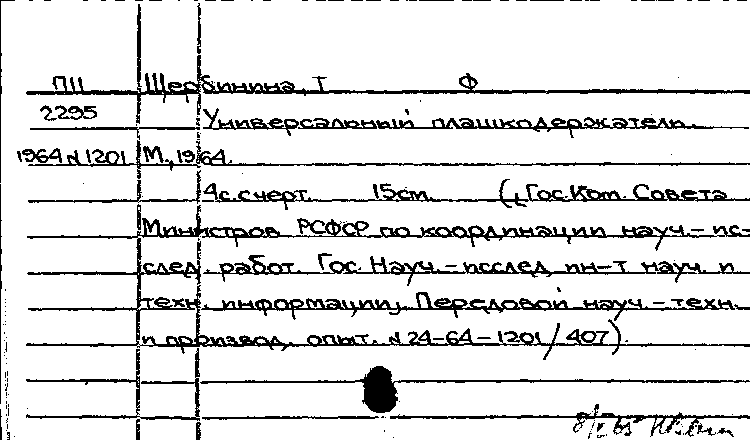 П11 Щербинина, Т Ф
2295 Универсальный плашкодержатель.
1964 N 1201 М., 1964.
4с.счерт. 15см. (Гос.Ком. Совета
Министров РСФСР по координации науч.-ис-
след. работ. Гос. Науч.-исслед. ин-т науч. и
техн. информации. Передовой науч.-техн.
и производ. опыт. N 24-64-1201/407).